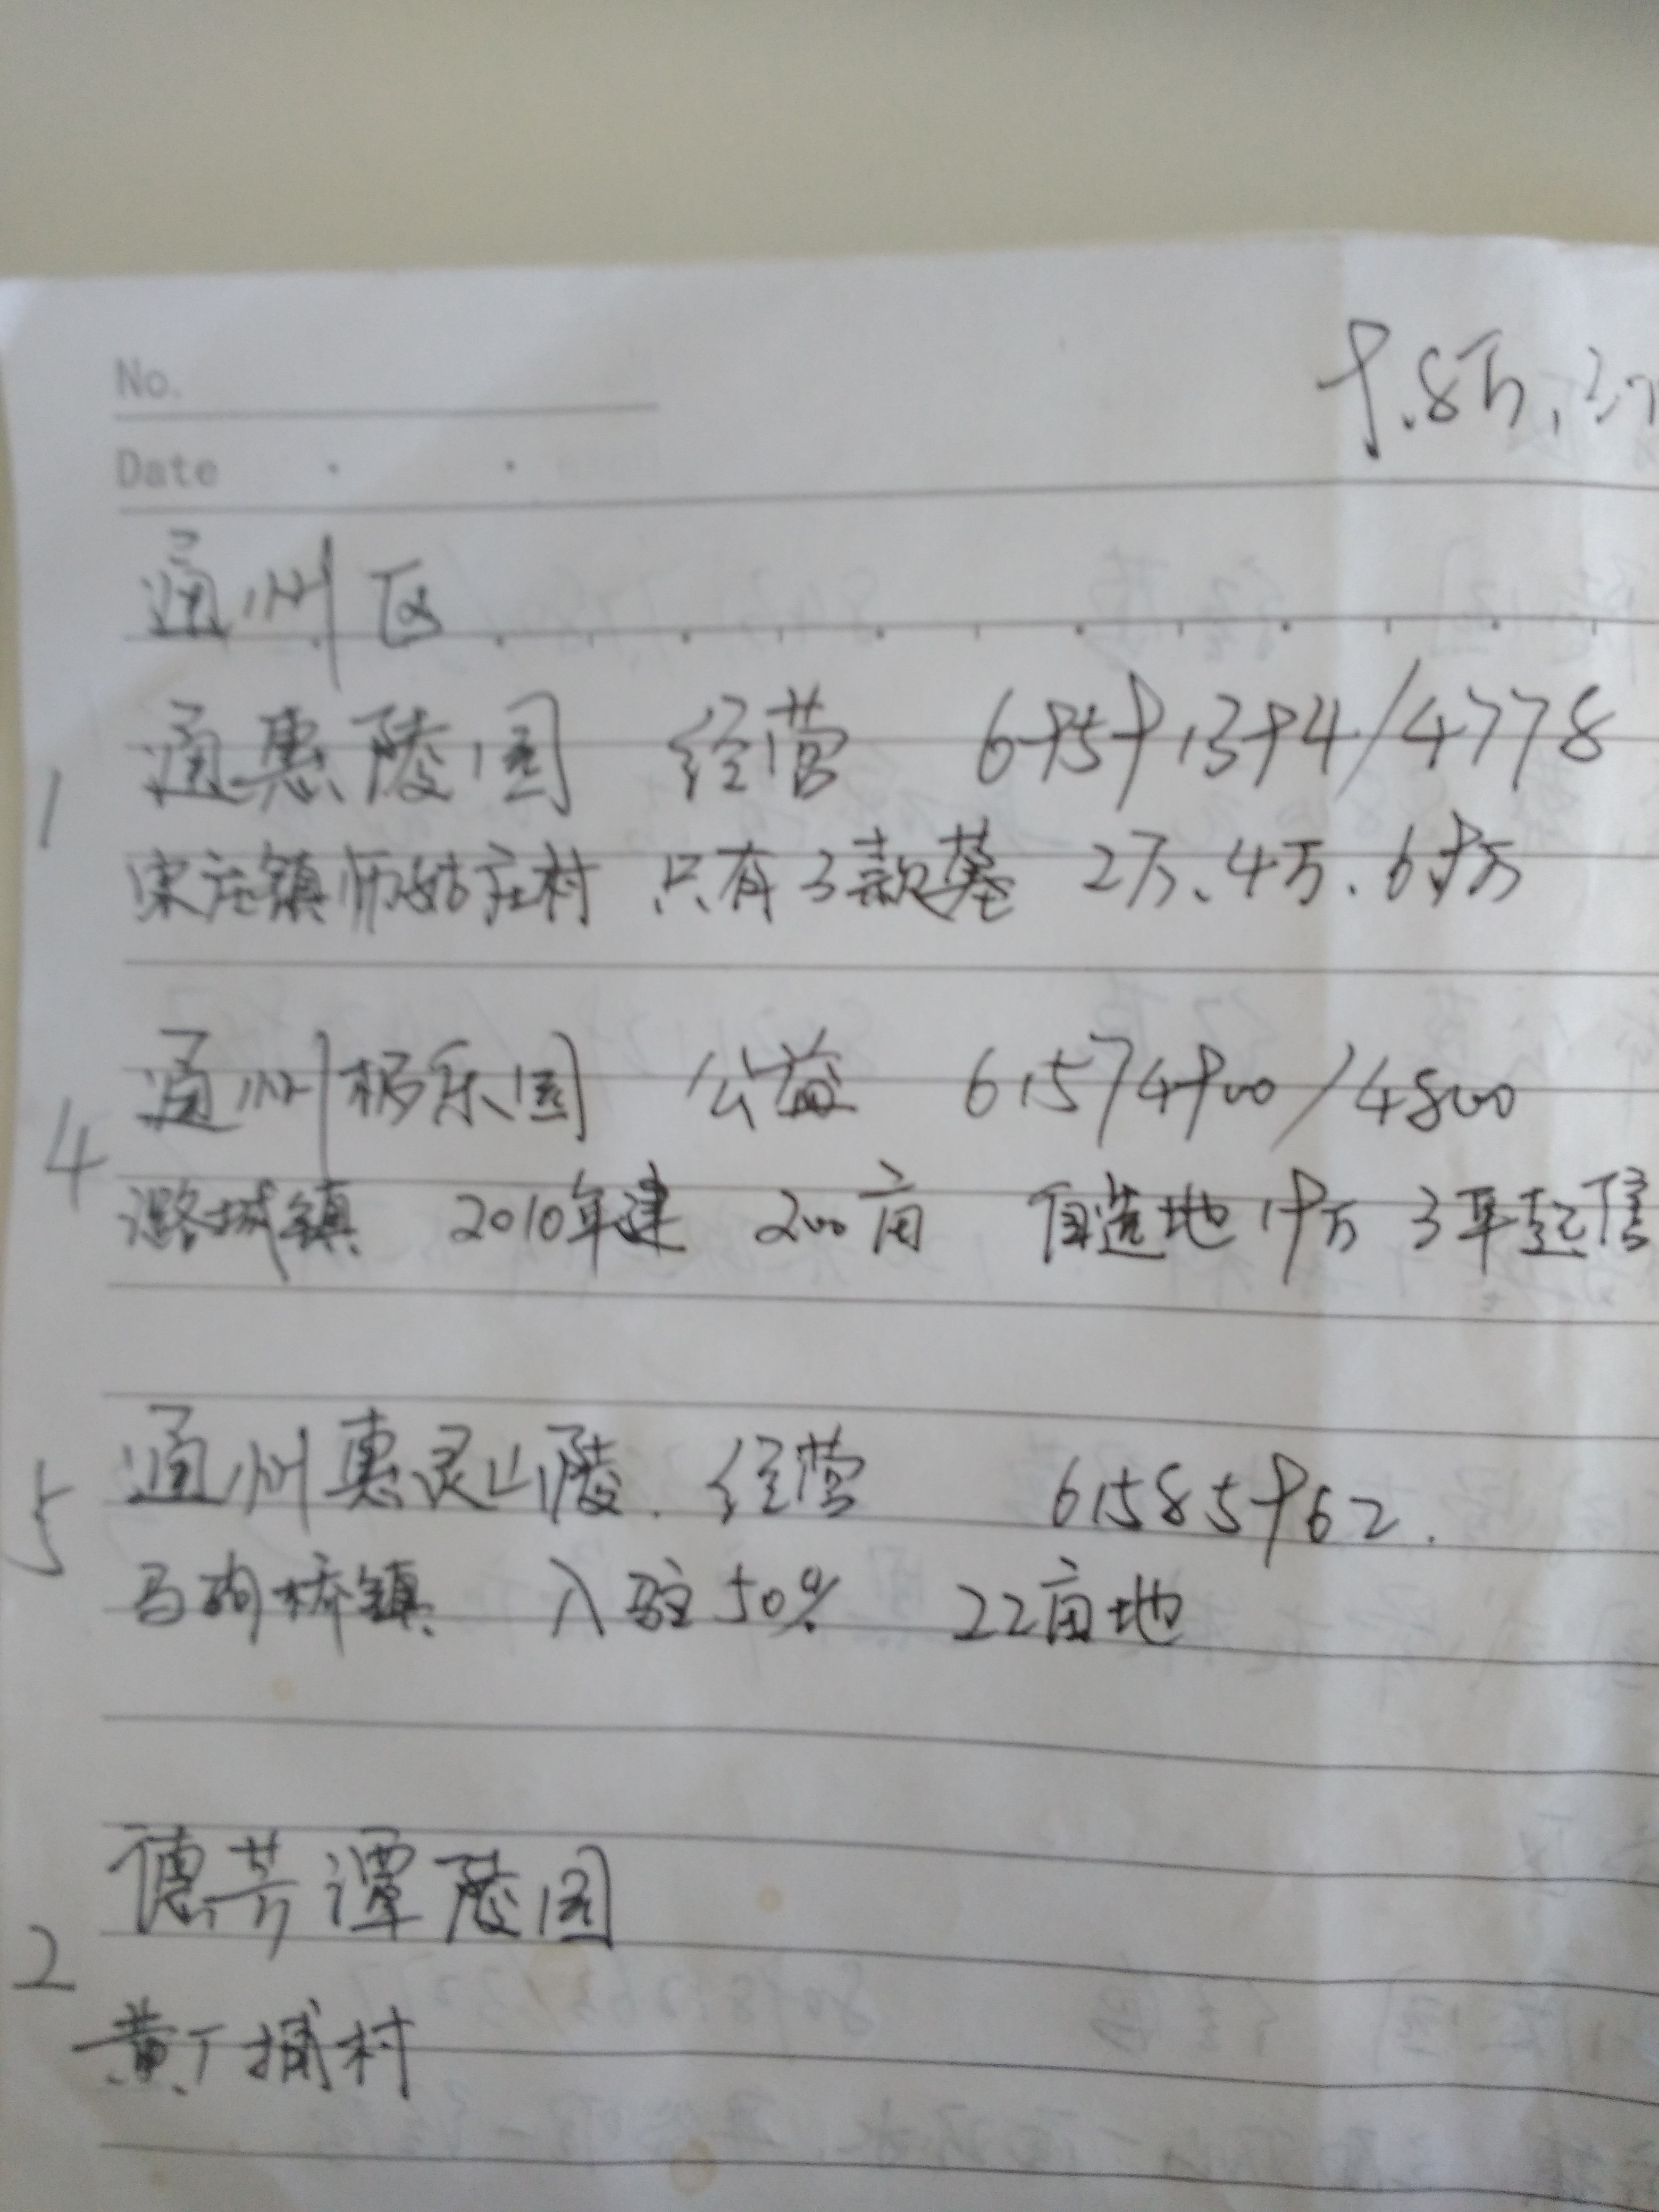 No.
9.8万,
Date
通州区
1 通惠陵园 经营 69591394/4778
宋庄镇师姑庄村 只有3款墓 2万、4万、6.9万
4 通州极乐园 公益 61574900/4800
潞城镇 2010年建 200亩 自选地19万 3平起售
5 通州惠灵山陵. 经营 61585962.
马驹桥镇 入驻50% 22亩地
2 德芳谭陵园
黄厂 村